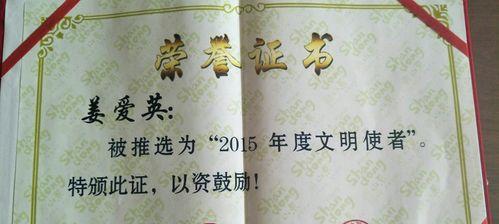 荣誉证书
姜爱英:
被推选为“2015 年度文明使者”。
特颁此证，以资鼓励!